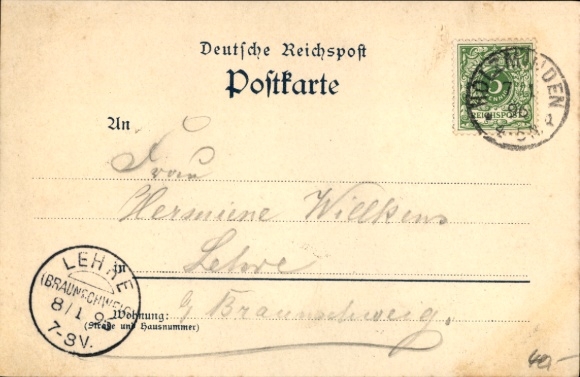 Deutsche Reichspost
Postkarte
5
REICHSPOST
HOLZMINDEN
7
96
An
Frau
Hermine Willkens
in Lehre
LEHRE
(BRAUNSCHWEIG)
8/1
7-8V.
b/ Braunschweig.
Wohnung:
(Straße und Hausnummer)
40,-